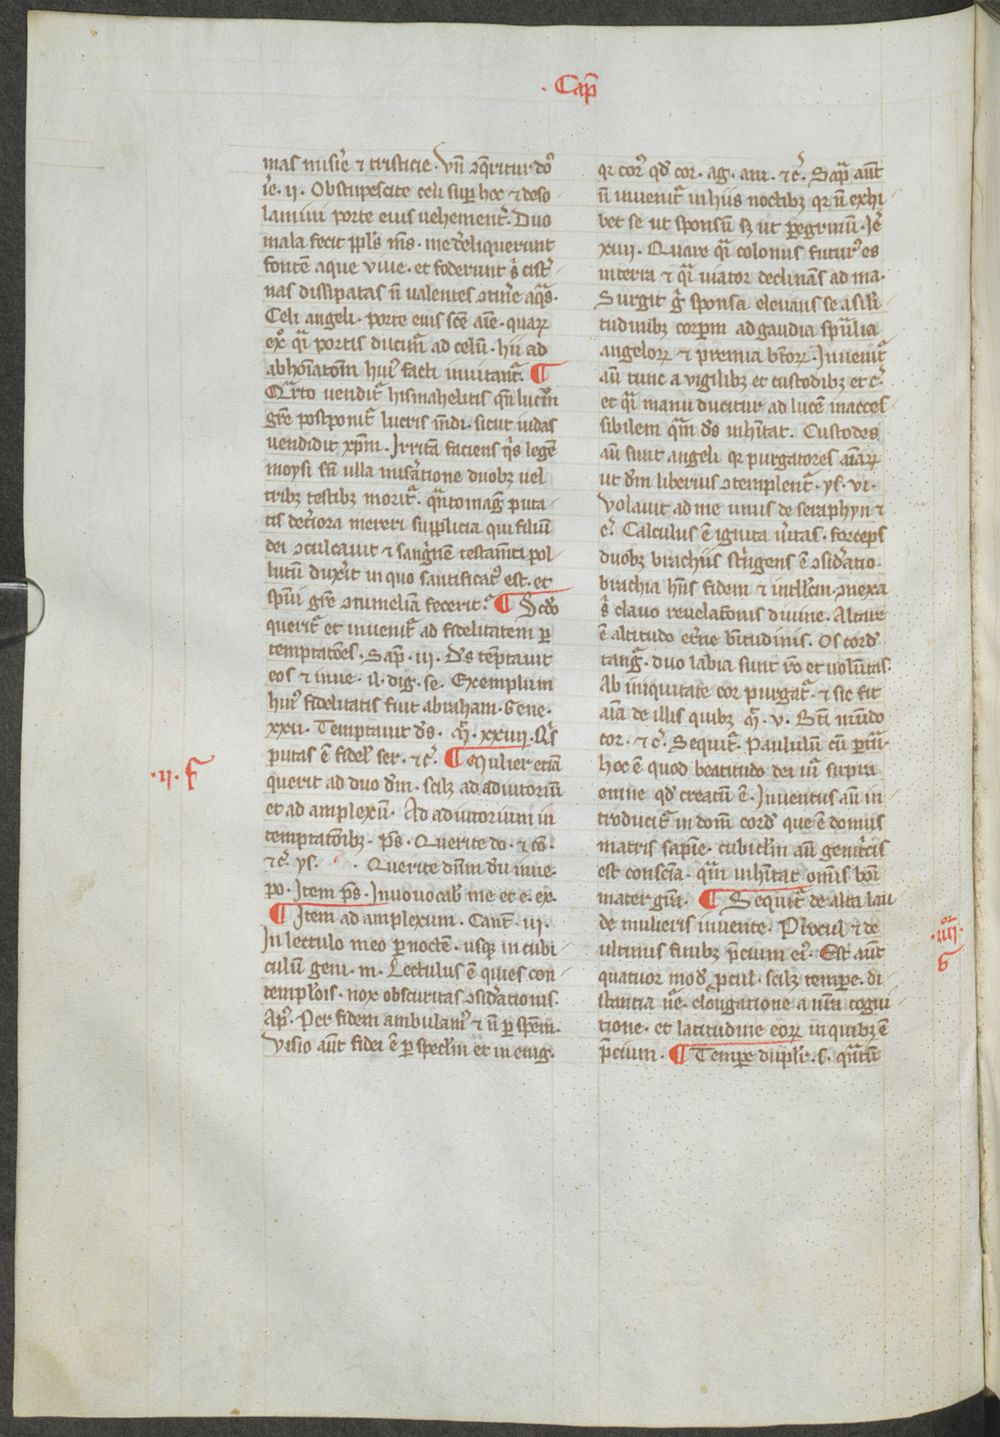 · Cap̄
mas misīe ⁊ tristicie. Vn̄ ꝯq̄ritur dō
Ie. ii. Obstupescite celi suꝑ hoc ⁊ deso-
lamini porte eius uehement̄. Duo
mala fecit ppl̄s m̄s. me dereliquerunt
fontē aque uiue. et foderunt s̄ cist̄-
nas dissipatas n̄ ualentes ꝯtinē aq̄s.
Celi angeli. porte eius sc̄e aīe. quaꝝ
ex̄ qͣi portis ducim̄ ad celū. hii ad
abhoīatōm huiꝰ facti inuitant᷑. ¶
Qͣrto uendit᷑ hismahelitis qn̄ lucrū
gr̄e postponit᷑ lucris mūdi. sicut iudas
uendidit xp̄m. Irritā faciens q̄s legē
moysi sn̄ ulla misatione duobꝫ uel
tribꝫ testibꝫ morit᷑. qͣntomaḡ puta
tis det̄iora mereri supplicia qui filiū
dei ꝯculcauit ⁊ sanḡnem testam̄ti pol-
lutū dux̄it in quo santificatꝰ est. et
spūi gr̄e ꝯtumeliā fecerit. ¶ Scd̄o
querit᷑ et inuenit᷑ ad fidelitatem ꝑ
temptatōes. Sap̄. iii. D̄s tēptauit
eos ⁊ inue. il. dig. se. Exemplum
huiꝰ fidelitatis fuit abraham. Gene.
xxii. Temptauit d̄s. M̄. xxiiii. Qͥs
putas ē fidel̄ ser. ⁊ c̄. ¶ Mulier etiā
·ii· f
querit ad duo dm̄. scilꝫ ad adiutoriū
et ad amplexū. Ad adiutorium in
temptatōibꝫ. p̄s. Querite do. ⁊ ꝯ̄.
⁊ c̄. ys. . Querite dn̄m dū inue.
po. Item p̄s. Inuouocab̄ me et e. ex.
¶ Item ad amplexum. Cant̄. iii.
In lectulo meo ꝑ noctē. usqꝫ in cubi-
culū geni. m. Lectulus ē quies con-
templōis. nox obscuritas ꝯsid̄ationis.
Ap̄. Per fidem ambulamꝰ ⁊ n̄ ꝑ spēm.
Visio aūt fidei ē ꝑ specl̄m et in enig.
qr cor̄ qd̄ cor. ag. ani. ⁊ c̄. Sap̄ aūt
n̄ inuenit᷑ in hiis noctibꝫ qr n̄ exhi-
bet se ut sponsū sꝫ ut ꝑegrinū. Ie
xiiii. Quare qͣi colonus futurꝰ es
in terra ⁊ qͣi uiator declinās ad ma.
Surgit g̊ sponsa eleuans se a sili
tudinibꝫ corpm ad gaudia spūalia
angeloꝝ ⁊ premia bt̄oꝝ. Inuenit᷑
aū tunc a uigilibꝫ et custodibꝫ et c̄.
et qͣi manu ducitur ad lucē inacces-
sibilem qͣm d̄s inhītat. Custodes
aū sunt angeli qr purgatores aīaꝝ
ut dm̄ liberius ꝯtemplent᷑. ys. vi.
Volauit ad me unus de seraphyn ⁊
c̄. Calculus ē ignita u̅itas. forceps
duobꝫ brachiis st̄ngens ē ꝯsid̄atio.
brachia hn̄s fidem ⁊ intllc̄m. ꝯnexa
s̄ clauo reuelatōnis diuine. Altare
ē altitudo et̄ne b̄titudinis. Os cord̄
tang̊. duo labia sunt ro̅ et uolūtas.
Ab iniquitate cor purgat᷑. ⁊ sic fit
aīa de illis quibꝫ M̄. v. Bt̄i mūdo
cor. ⁊ c̄. Sequit᷑. Paululū cū ꝑ̄.
hoc ē quod beatitudo dei iii supra
omne qd̄ creatū ē. Inuentus aū in
troducit᷑ in dom̄ cord̄ que ē domus
matris sapīe. cubicl̄m aū genit̄cis
est consciā. qͣm inhītat omīs boī
mater grā. ¶ Sequit᷑ de alta lau
de mulieris inuente. Procul ⁊ de
or
·iiii·
G
ultimis finibꝫ p̄cium eiꝰ. Est aūt
quatuor mod̄ procul. scilꝫ tempe. di-
stantia ue. elongatione a nr̄a cogni-
tione. et latitudine eoꝝ in quibꝫ ē
p̄cium. ¶ Tempe dupl̄r. s. qͣntū